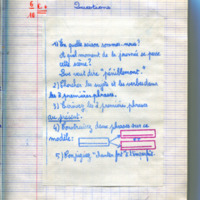 Questions
1) En quelle saison sommes-nous?
A quel moment de la journée se passe
cette scène?
Que veut dire "péniblement".
2) Chercher les sujets et les verbes dans
les 3 premières phrases.
3) Ecrivez les 2 premières phrases
au présent.
4) Construisez deux phrases sur ce
modèle:
5) Conjuguez "chanter fort" à l'imparfait.